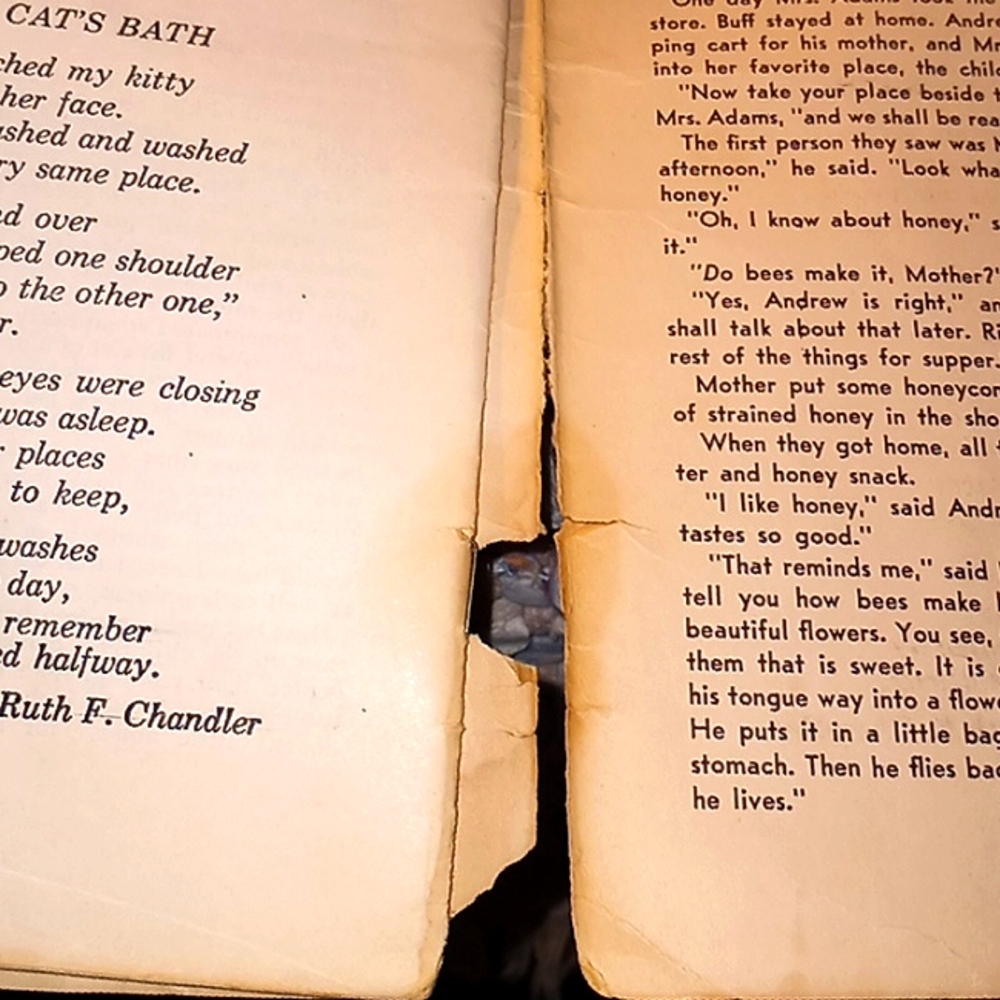 CAT'S BATH
my kitty
her face.
and washed
same place.
over
one shoulder
the other one,"
eyes were closing
was asleep.
places
to keep,
washes
day,
remember
halfway.
Ruth F. Chandler
One day Mrs. Adams took
store. Buff stayed at home.
ping cart for his mother, and
into her favorite place, the
"Now take your place beside
Mrs. Adams, "and we shall be
The first person they saw was
afternoon," he said. "Look
honey."
"Oh, I know about honey,"
it."
"Do bees make it, Mother?"
"Yes, Andrew is right,"
shall talk about that later.
rest of the things for supper.
Mother put some
of strained honey in the
When they got home, all
ter and honey snack.
"I like honey," said
tastes so good."
"That reminds me," said
tell you how bees make
beautiful flowers. You see,
them that is sweet. It is
his tongue way into a
He puts it in a little
stomach. Then he flies
he lives."